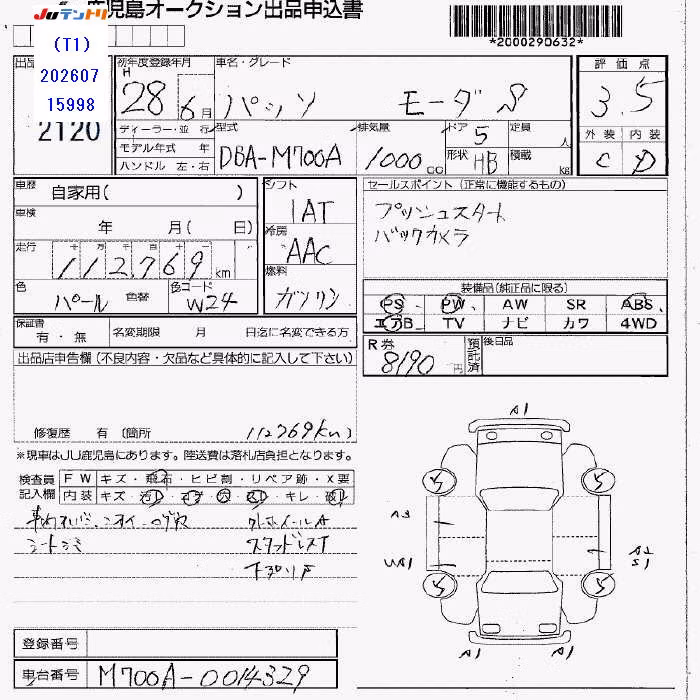 JUテントリ 鹿児島オークション出品申込書
*2000290632*
(T1)
202607
15998
2120
初年度登録年月
H 28 6月
車名・グレード
パッソ モーダ S
評価点
3.5
外装 内装
C D
ディーラー・並行
モデル年式 年
ハンドル 左・右
型式
DBA-M700A
排気量
1000 cc
ドア 5
形状 HB
定員 人
積載 kg
車歴 自家用( )
車検 年 月( 日)
走行 十 万 千 百 十 一
112769 km
色 パール 色替
色コード W24
シフト
1AT
冷房
AAC
燃料
ガソリン
セールスポイント (正常に機能するもの)
プッシュスタート
バックカメラ
装備品(純正品に限る)
PS PW AW SR ABS
エアB TV ナビ カワ 4WD
保証書 有・無
名変期限 月 日迄に名変できる方
R券 8190円
預託済
後日品
出品店申告欄(不良内容・欠品など具体的に記入して下さい)
修復歴 有 〔箇所
112769km
※現車はJU鹿児島にあります。陸送費は落札店負担となります。
検査員記入欄
FW キズ・飛石・ヒビ割・リペア跡・X要
内装 キズ
キレ
シートシミ
スタッドレス
下廻り
A1
5
5
A3
A2
S1
5
5
A1
A1
登録番号
車台番号 M700A-0014329